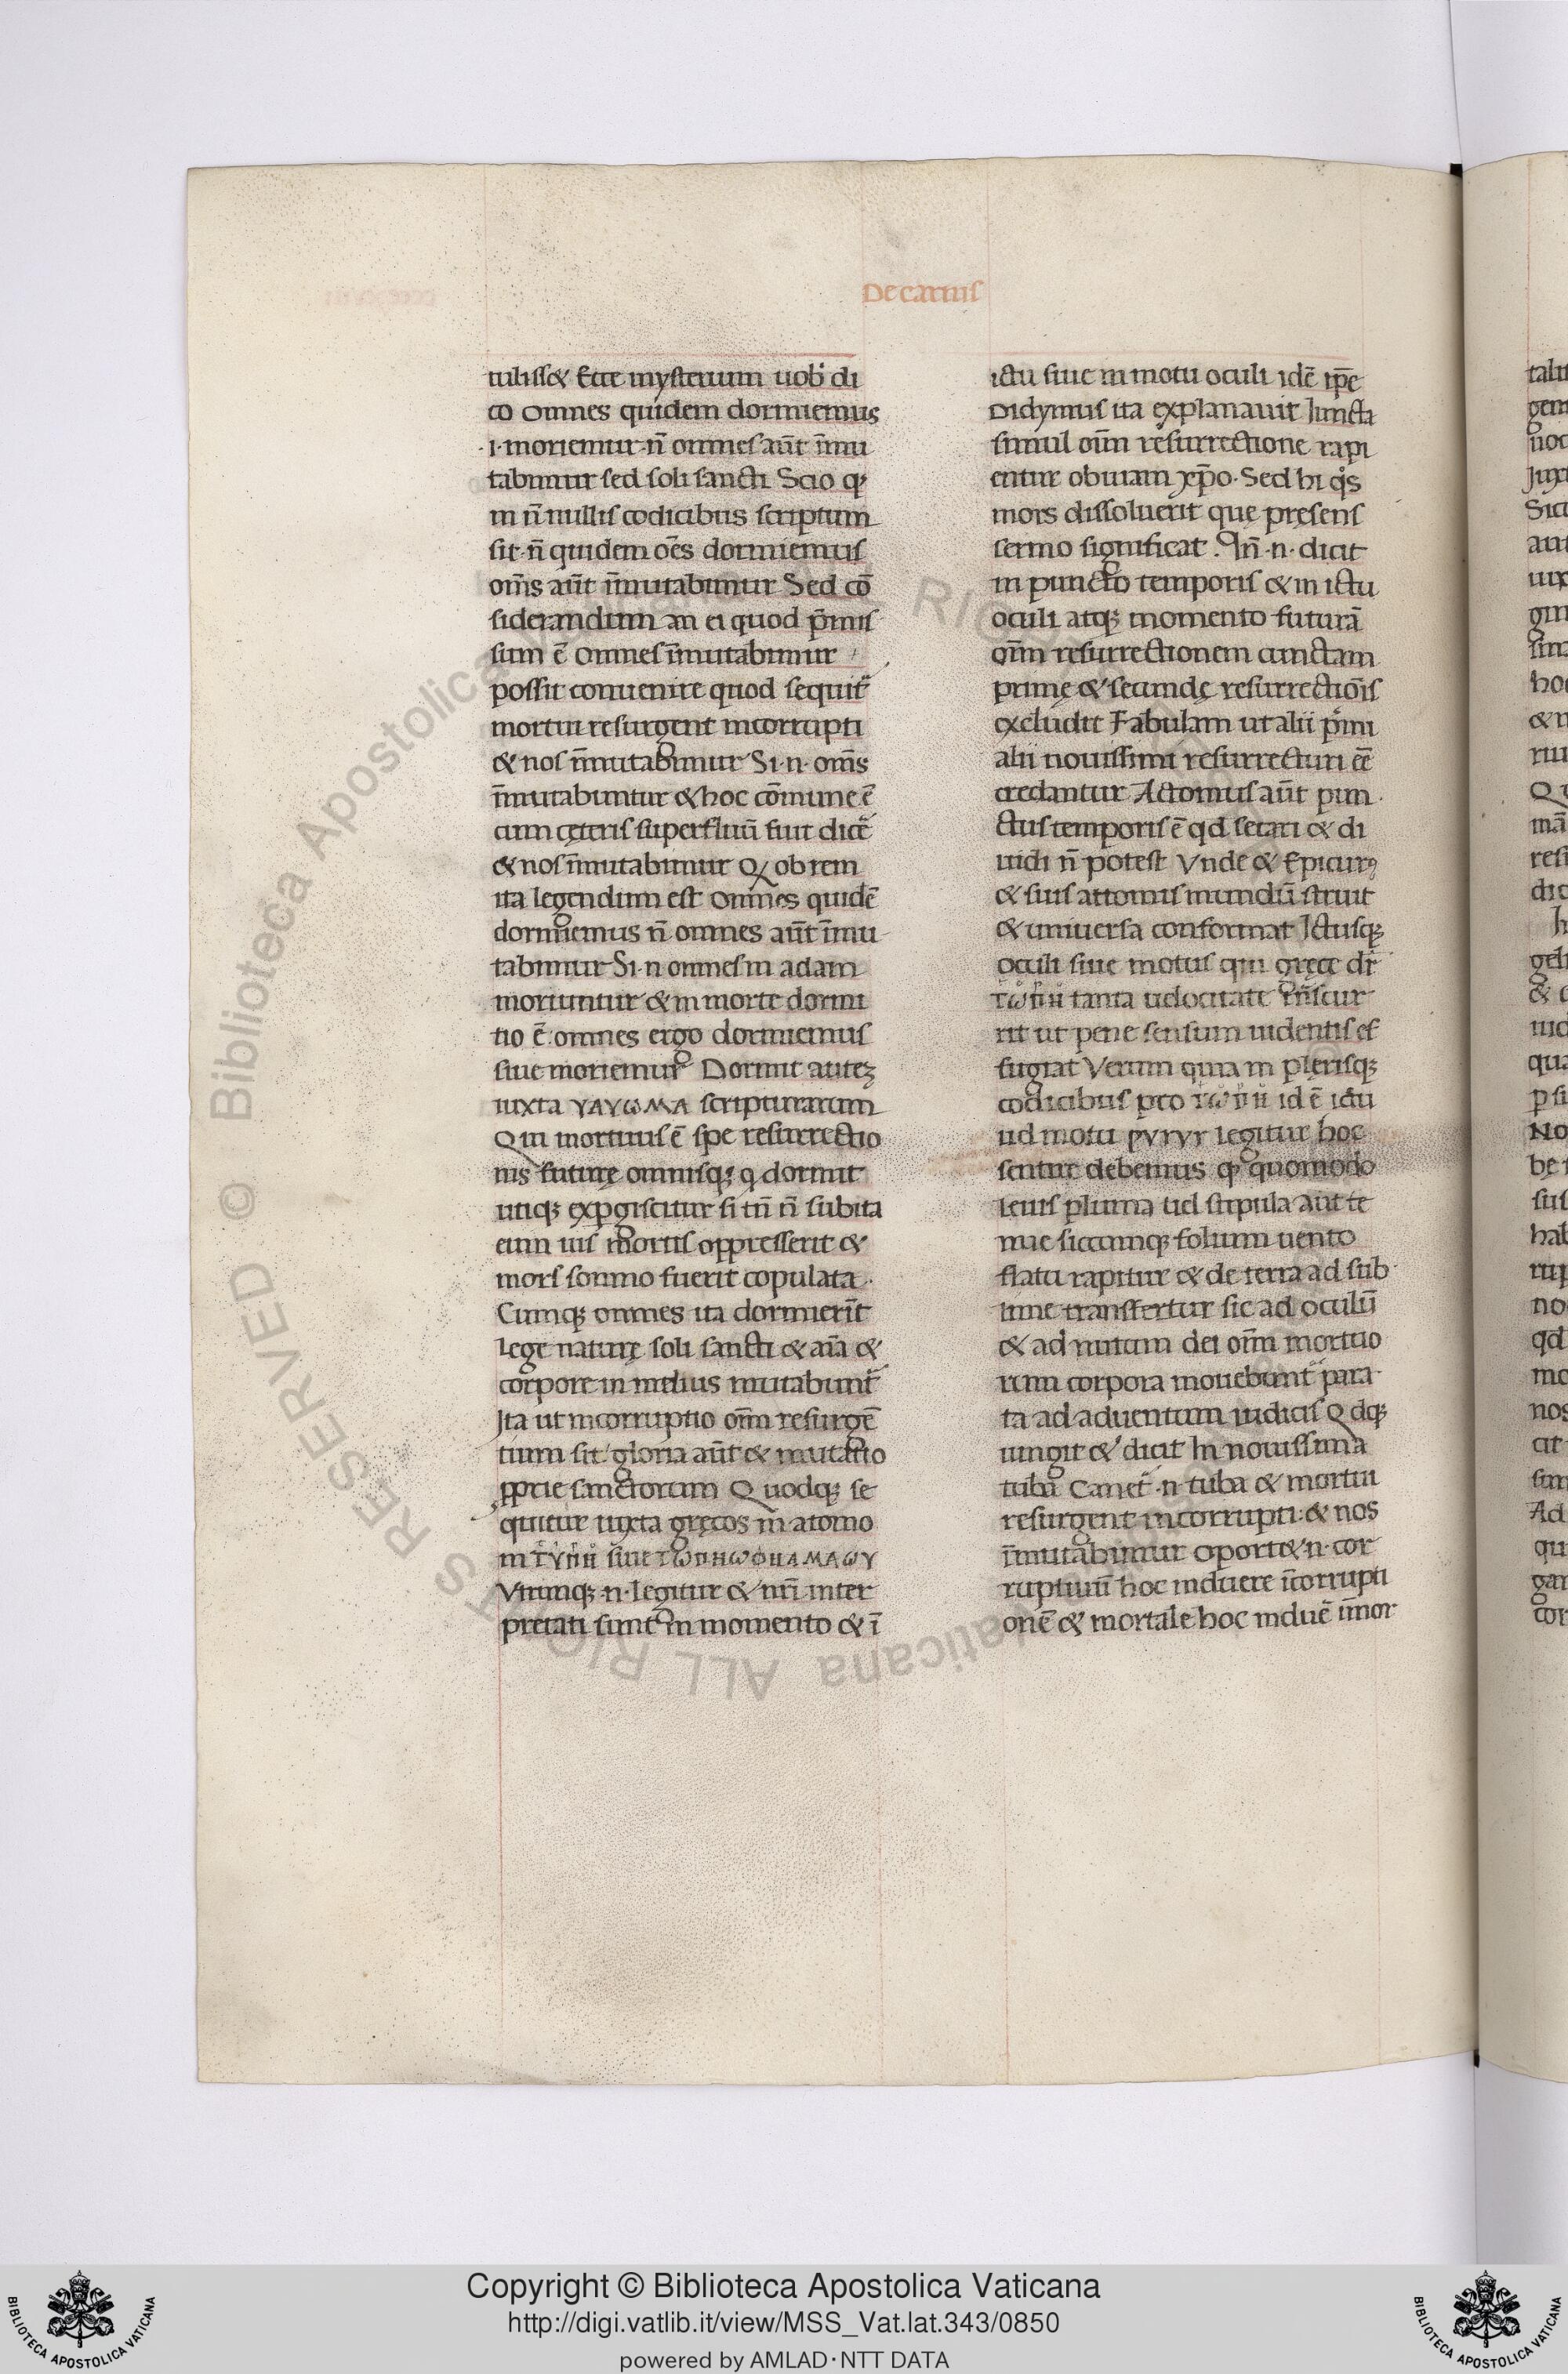 Decarnis
tulisset Ecce mysterium uob di
co Omnes quidem dormiemus
·i· moriemur· n̄ omnes aūt īmu
tabimur sed soli sancti Scio q
in n̄ nullis codicibus scriptum
sit· n̄ quidem oēs dormiemus
om̄s aūt īmutabimur Sed cō
siderandum an ei quod p̄mis
sum ē Omnes īmutabimur
possit conuenire quod sequit
mortui resurgent incorrupti
& nos īmutabimur Si·n· om̄s
īmutabuntur & hoc cōmune ē
cum cęteris superfluū fuit dicē
& nos īmutabimur Q obrem
ita legendum est Omnes quidē
dormiemus n̄ omnes aūt īmu
tabimur Si·n omnes in adam
moriuntur & in morte dormi
tio ē: omnes ergo dormiemus
siue moriemur Dormit autez
iuxta ΥΑΥωΜΑ scripturarum
Qui mortuus ē spe resurrectio
nis futurę omnisq; q dormit
utiq; expgiscitur si tn̄ n̄ subita
eum uis mortis oppresserit &
mors somno fuerit copulata·
Cumq; omnes ita dormierīt
lege naturę soli sancti & aīa &
corpore in melius mutabunt
Ita ut incorruptio om̄m resurgē
tium sit gloria aūt & mutatio
pprie sanctorum Quodq; se
quitur iuxta gręcos in atomo
in ΤΥΠΗ siue ΤωΠΗωΦΗΑΜΑωΥ
Vtrumq;·n· legitur & nr̄i inter
pretati sunt in momento & ī
ictu siue in motu oculi idē ip̄e
Didymus ita explanauit Iuncta
simul om̄m resurrectione rapi
entur obuiam xp̄o· Sed hi qs
mors dissoluerit quę pręsens
sermo significat. In̄·n· dicit
in puncto temporis & in ictu
oculi atq; momento futurā
om̄m resurrectionem cunctam
primę & secundę resurrectiōis
excludit Fabulam ut alii p̄mi
alii nouissimi resurrecturi eē
credantur Actomus aūt pun
ctus temporis ē qd secari & di
uidi n̄ potest Vnde & Epicur9
& suis attomis mundū struit
& uniuersa conformat Ictusq;
oculi siue motus qui gręce dr̄
ΤωΠΗ tanta uelocitate tn̄scur
rit ut pene sensum uidentis ef
fugiat Verum quia in plerisq;
codicibus pro ΤωΠΗ id ē ictu
ud motu ΡΥΤΥΥ legitur hoc
sentire debemus q quomodo
leuis pluma uel stipula aut te
nue siccumq; folium uento
flatu rapitur & de terra ad sub
lime transfertur sic ad oculū
& ad nutum dei om̄m mortuo
rum corpora mouebunt para
ta ad aduentum iudicis Qdq;
iungit & dicit In nouissima
tuba Canet·n· tuba & mortui
resurgent incorrupti: & nos
īmutabimur Oportet·n· cor
ruptiuū hoc induere īcorrupti
onē & mortale hoc induē īmor
Copyright © Biblioteca Apostolica Vaticana
http://digi.vatlib.it/view/MSS_Vat.lat.343/0850
powered by AMLAD·NTT DATA
BIBLIOTECA APOSTOLICA VATICANA
BIBLIOTECA APOSTOLICA VATICANA